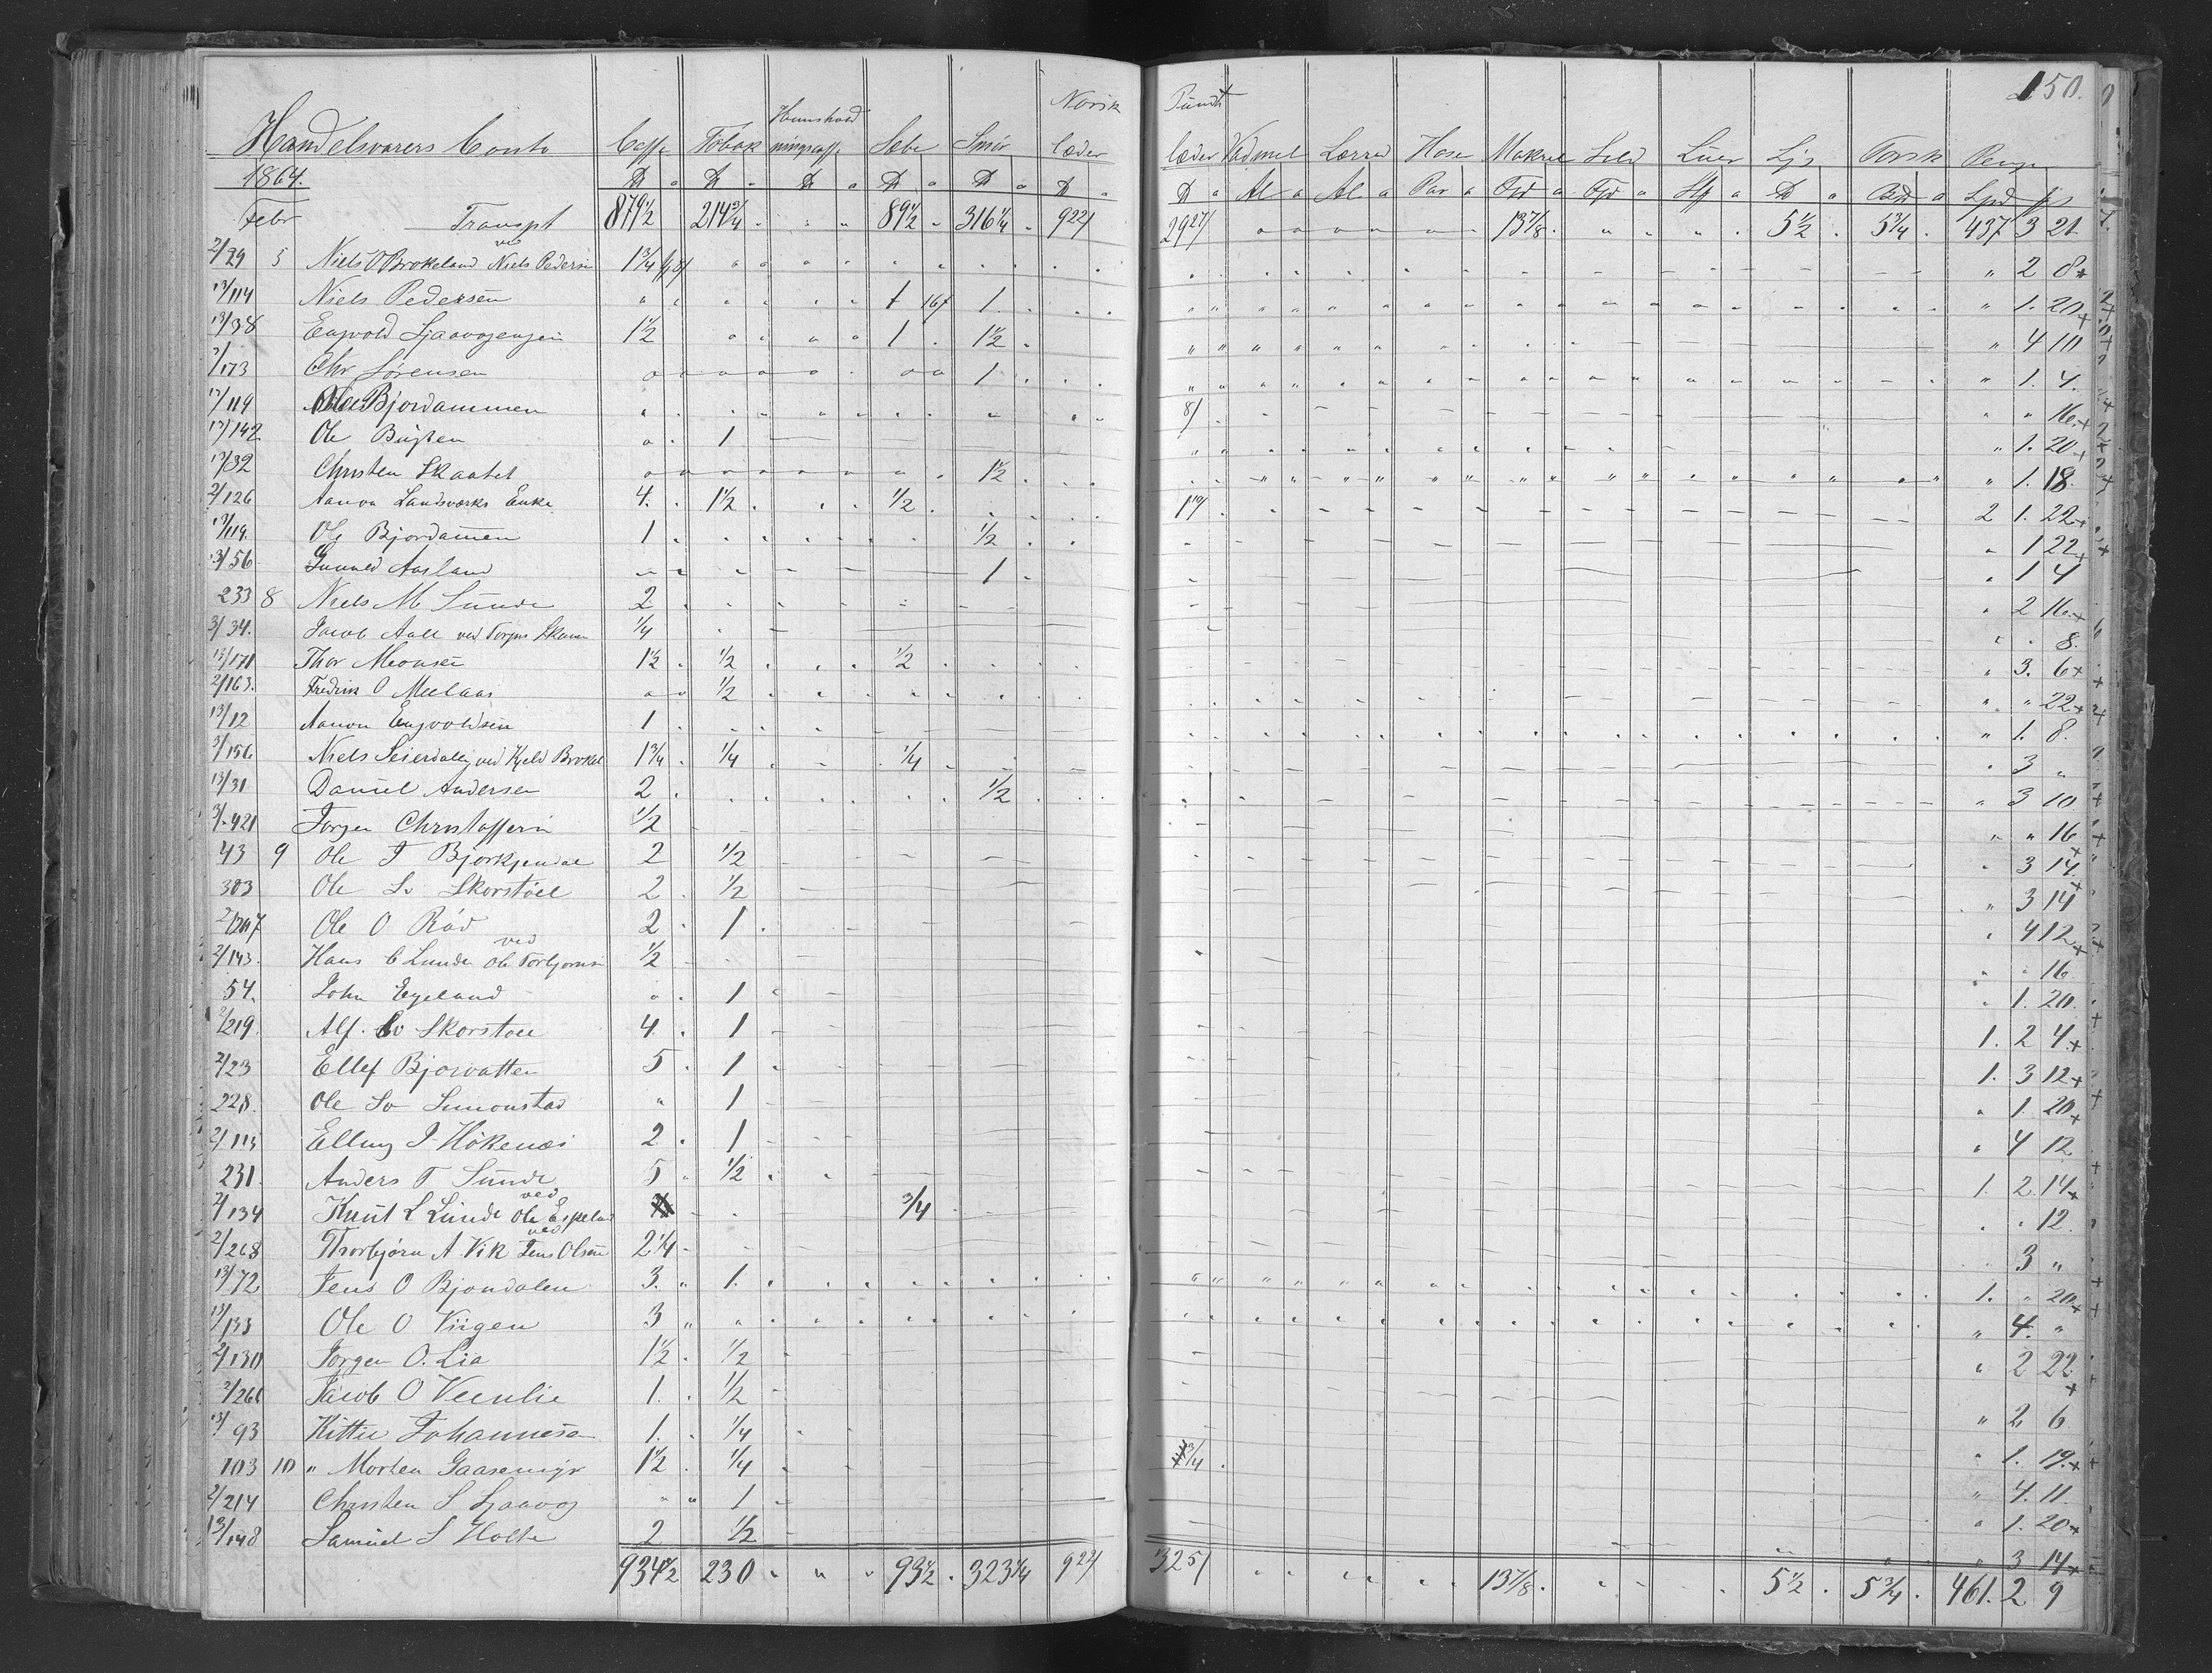 150.
Handelsvarers Conto Caffe Tobak Huushold ningscaffe Sæbe Smör Norsk læder Pundt læder Vadmel Lærred Hose Makrel Sild Luer Lys Torsk Penge
1864.
Febr Transpt 879 1/2 214 3/4 " " " 89 1/2 " 316 1/4 " 922/ 2927/ 13 7/8 5 1/2 5 3/4 437 3 21
2/29 5 Niels O Brokeland ved Niels Pedersen 1 3/4 " 2 8
13/114 Niels Pedersen 1 16/ 1 " 1. 20
13/38 Engvold Sjaavogengen 1 1/2 1 1 1/2 " 4 10
2/173 Chr Sörensen 1 " 1. 4.
13/119 Ole Bjordammen 8/ " " 16
13/142 Ole Bugten 1 " 1. 20
13/32 Christen Skaatet 1 1/2 " 1. 18.
2/126 Aanon Landsverks Enke 4. 1 1/2 1/2 119/ 2 1. 22
13/119. Ole Bjordammen 1 1/2 1 22
3/56 Gunuld Aasland 1 1 4
233 8 Niels M Sunde 2 2 16
3/34. Jacob Aall ved Torjus 1/4 8.
13/171 Thor Monsen 1 1/2 1/2 1/2 3. 6
2/163. Fredrik O Meelaas 1/2 " 22
13/12 Aanon Engvoldsen 1 " 1. 8.
3/156 Niels Seierdalen ved Kjeld Brokel 1 3/4 1/4 1/4 3 "
13/31 Daniel Andersen 2 1/2 3 10
3/421 Jörgen Christoffersen 1/2 " 16
43 9 Ole T Bjorkjendal 2 1/2 3 14
303 Ole Sv Skorstöl 2 1/2 3 14
2/247 Ole O Röd 2 1 4 12
2/143. Hans C Lunde ved Ole Torbjornsen 1/2 16
54. John Egeland 1 1. 20
2/219. Alf Sv Skorstöl 4. 1 1. 2 4.
2/23 Ellef Bjorvatten 5 1 1. 3 12
228. Ole Sv Simonstad " 1 1. 20
2/113 Elling J Hökenæs 2 1 4 12
231. Anders T Sunde 5 1/2 1. 2 14
2/134 Knut L Lunde ved Ole Espeland 3/4 12
2/268 Thorbjörn A Vik ved Jens Olsen 2 1/4 3 "
13/72 Jens O Bjondalen 3. 1. 1. " 20
13/133 Ole O Viigen 3 " 4. "
2/130 Jörgen O. Lia 1 1/2 1/2 2 22
2/266 Jacob O Veenlie 1. 1/2 " 2 6
13/93 Kittil Johannesen 1. 1/4 3/4 " 1. 19
103 10 " Morten Gaasemyr 1 1/2 1/4 " 4. 11.
2/214 Christen S Sjaavog " 1 1. 20
13/148 Samuel S Holte 2 1/2 " 3 14
934 1/2 230 " " " 93 1/2 . 323 1/4 922/ 325/ 13 7/8 5 1/2 5 3/4 461. 2 9